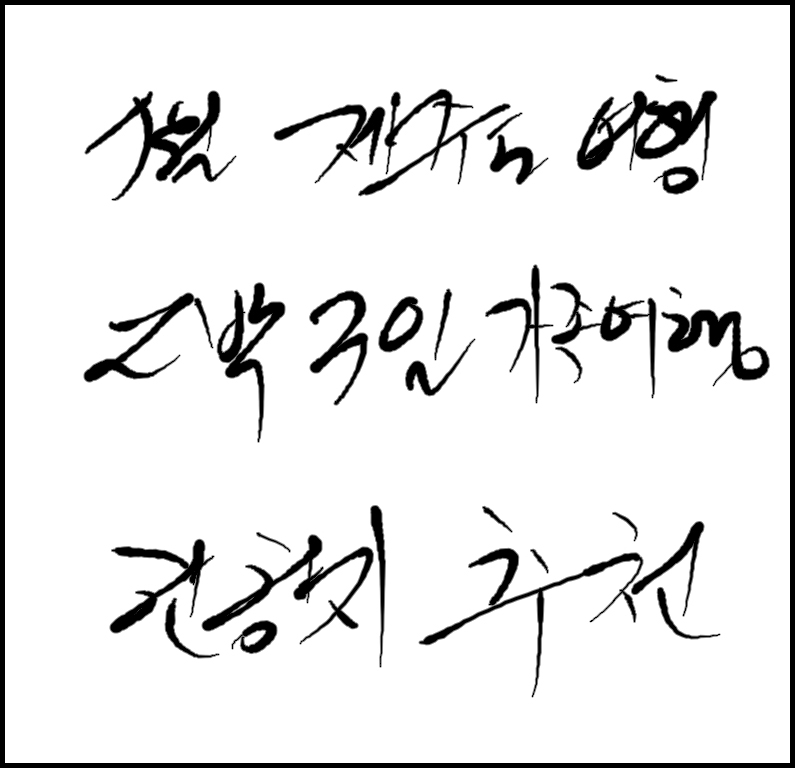 겨울 제주도 여행
2박 3일 가족여행
관광지 추천